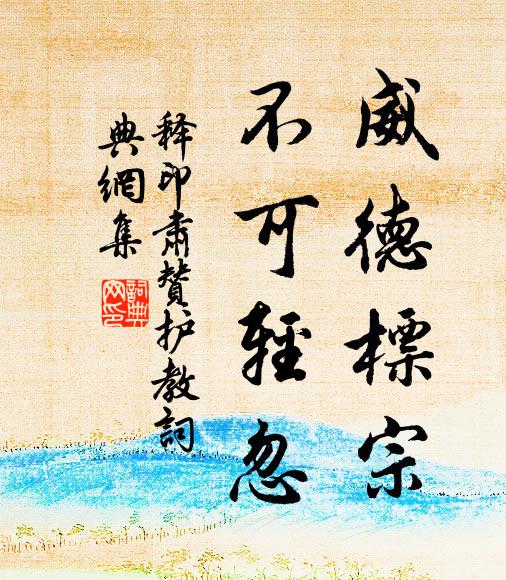 威德標宗
不可輕忽
释印肅贊护教詞
典網集
詞典
网印